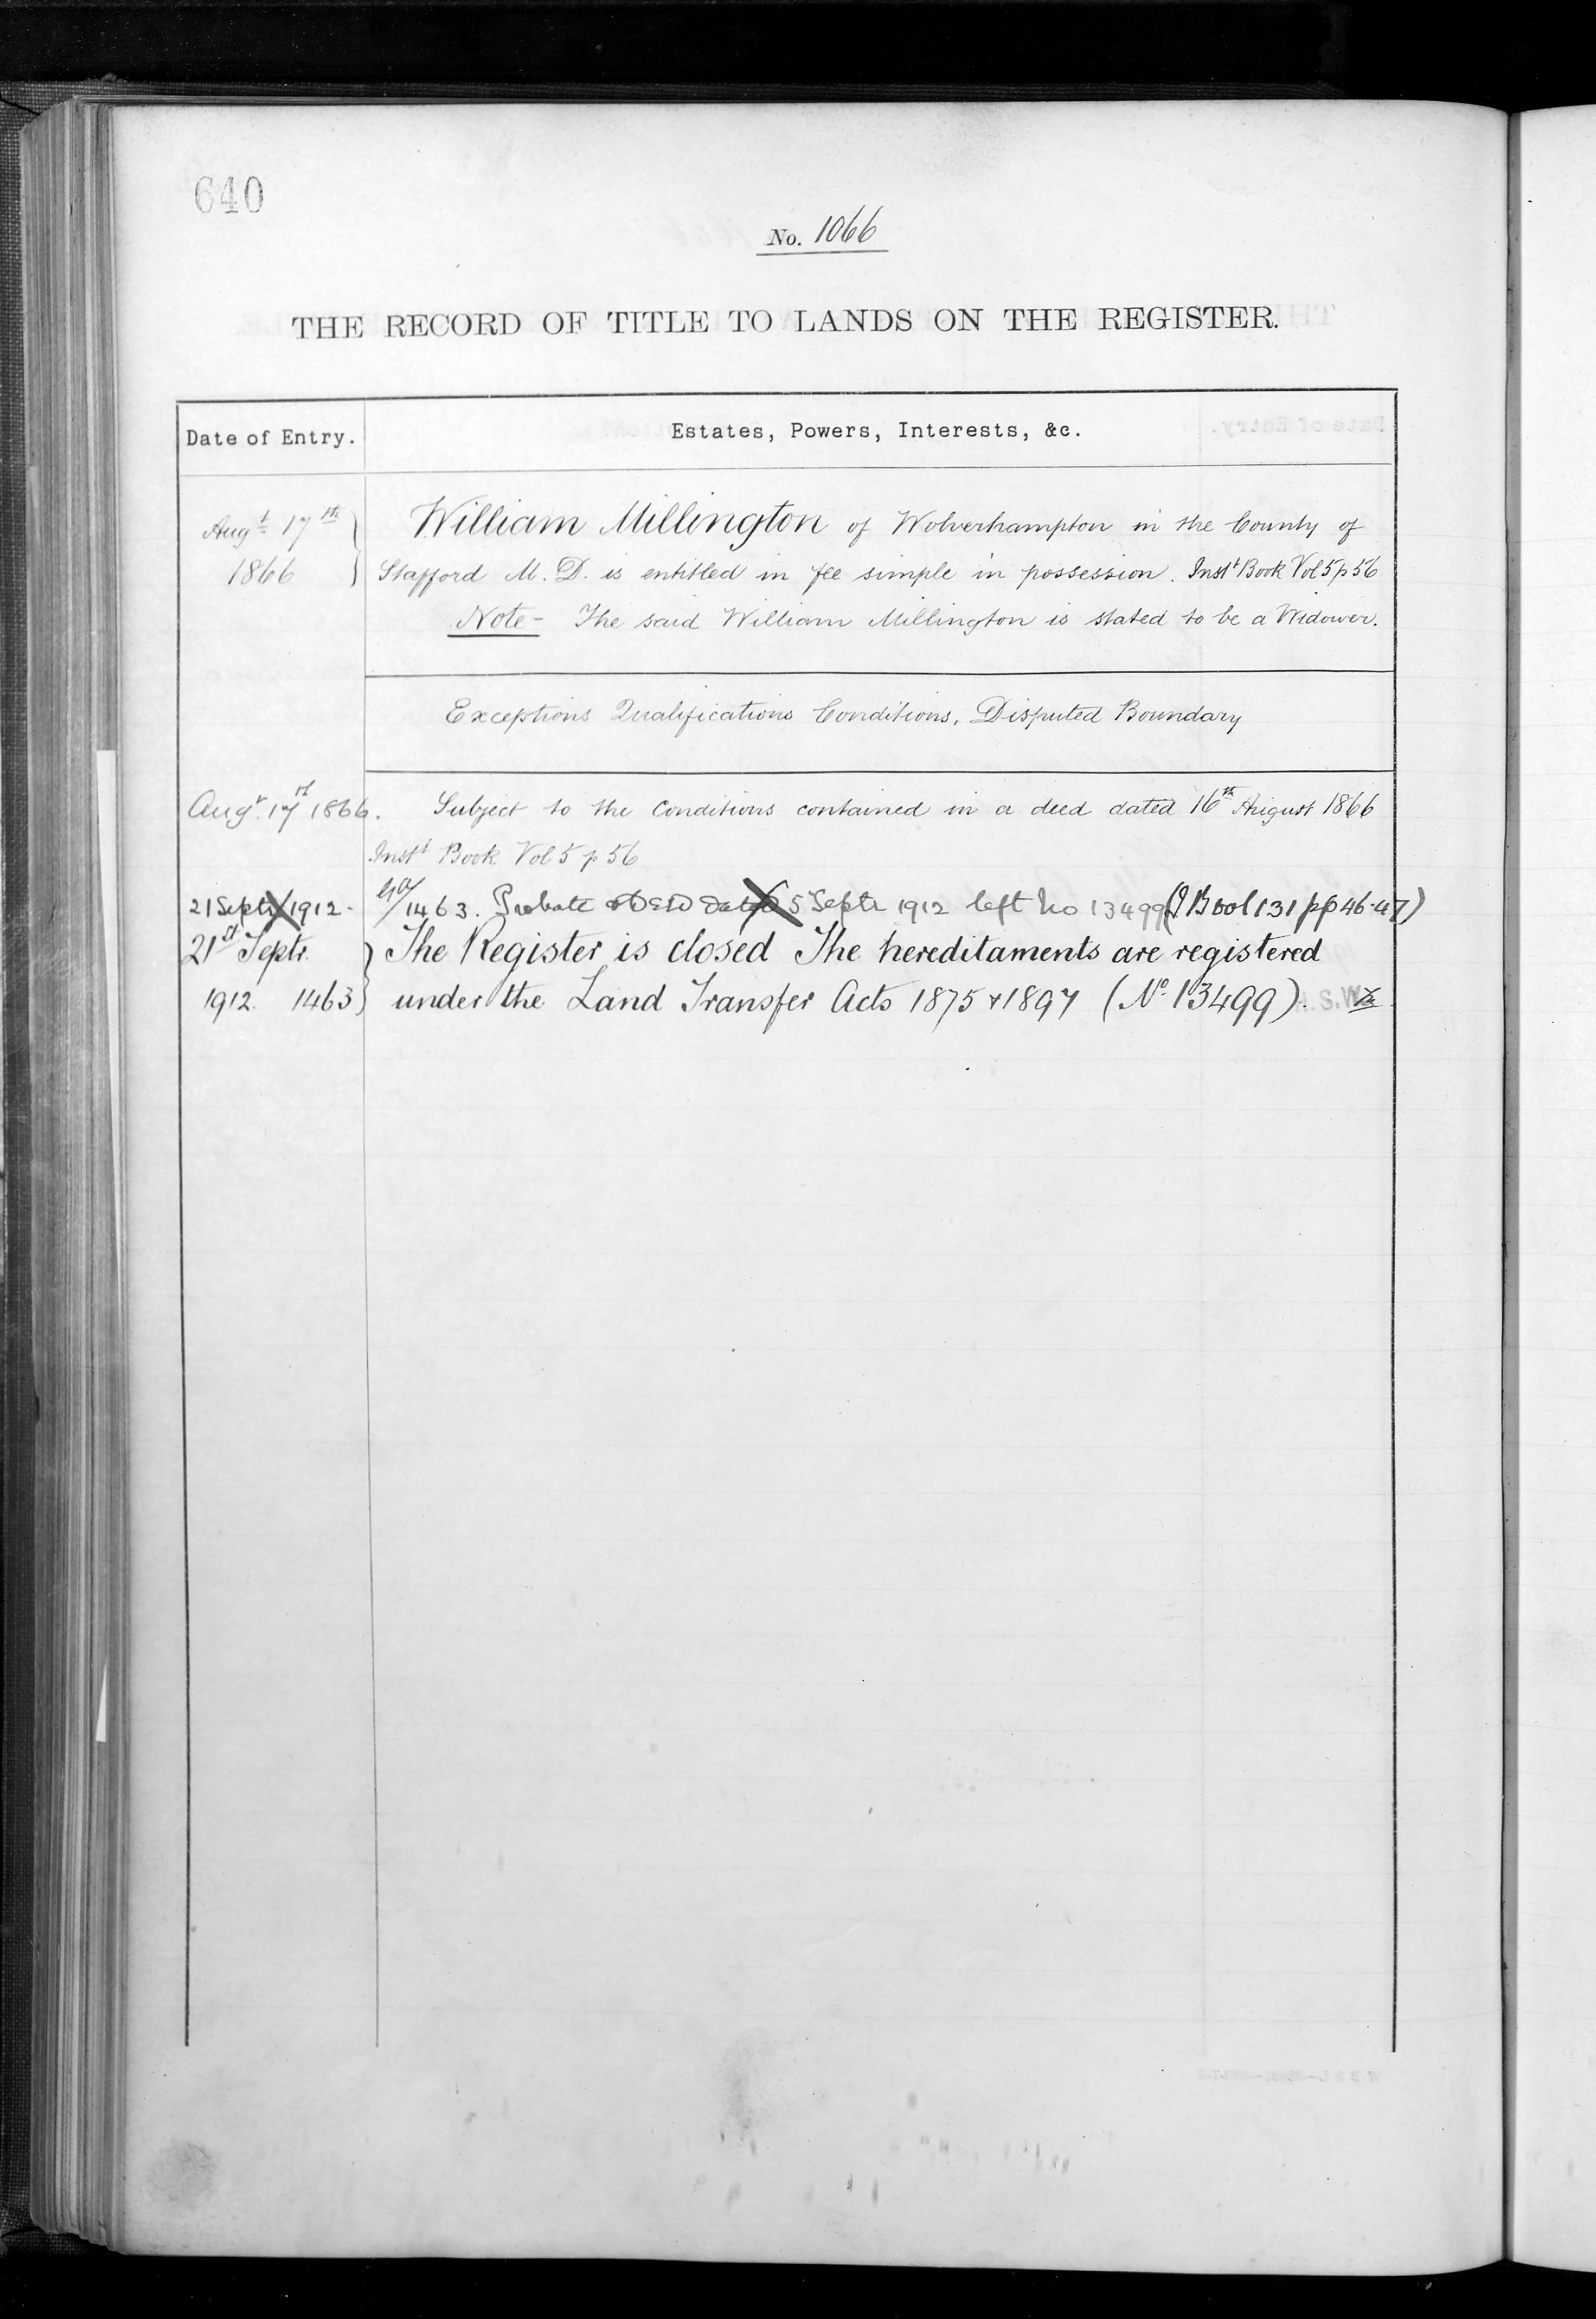 640
No. 1066
THE RECORD OF TITLE TO LANDS ON THE REGISTER.
Date of Entry. Estates, Powers, Interests, &c.
Augt 17th 1866
William Millington of Wolverhampton in the County of
Stafford M. D. is entitled in fee simple in possession. Instt Book Vol 5 p 56
Note - The said William Millington is stated to be a Widower.
Exceptions Qualifications Conditions, Disputed Boundary
Augt 17th 1866. Subject to the Conditions contained in a deed dated 16th August 1866
Instt Book Vol 5 p 56
21 Septr 1912. 1463. Probate dated 5 Septr 1912 left No 13499 (I Book 131 pp 46-47)
21st Septr. The Register is closed The hereditaments are registered
1912. 1463 under the Land Transfer Acts 1875 & 1897 (No. 13499).